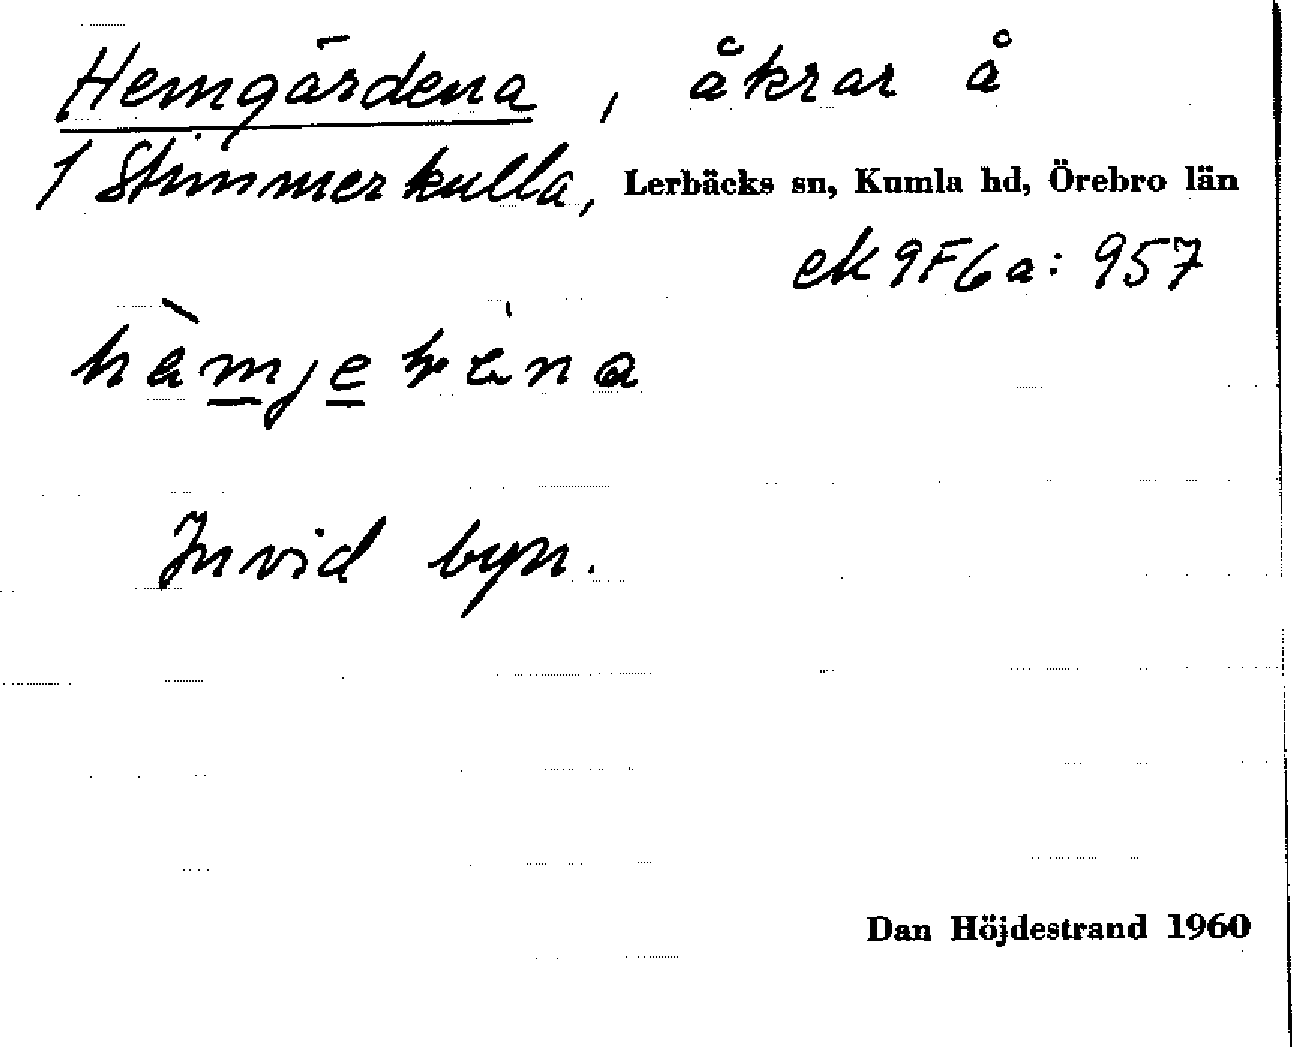 Hemgärdena, åkrar å
1 Stimmerkulla, Lerbäcks sn, Kumla hd, Örebro län
ek 9F6a: 957
Invid byn.
Dan Höjdestrand 1960